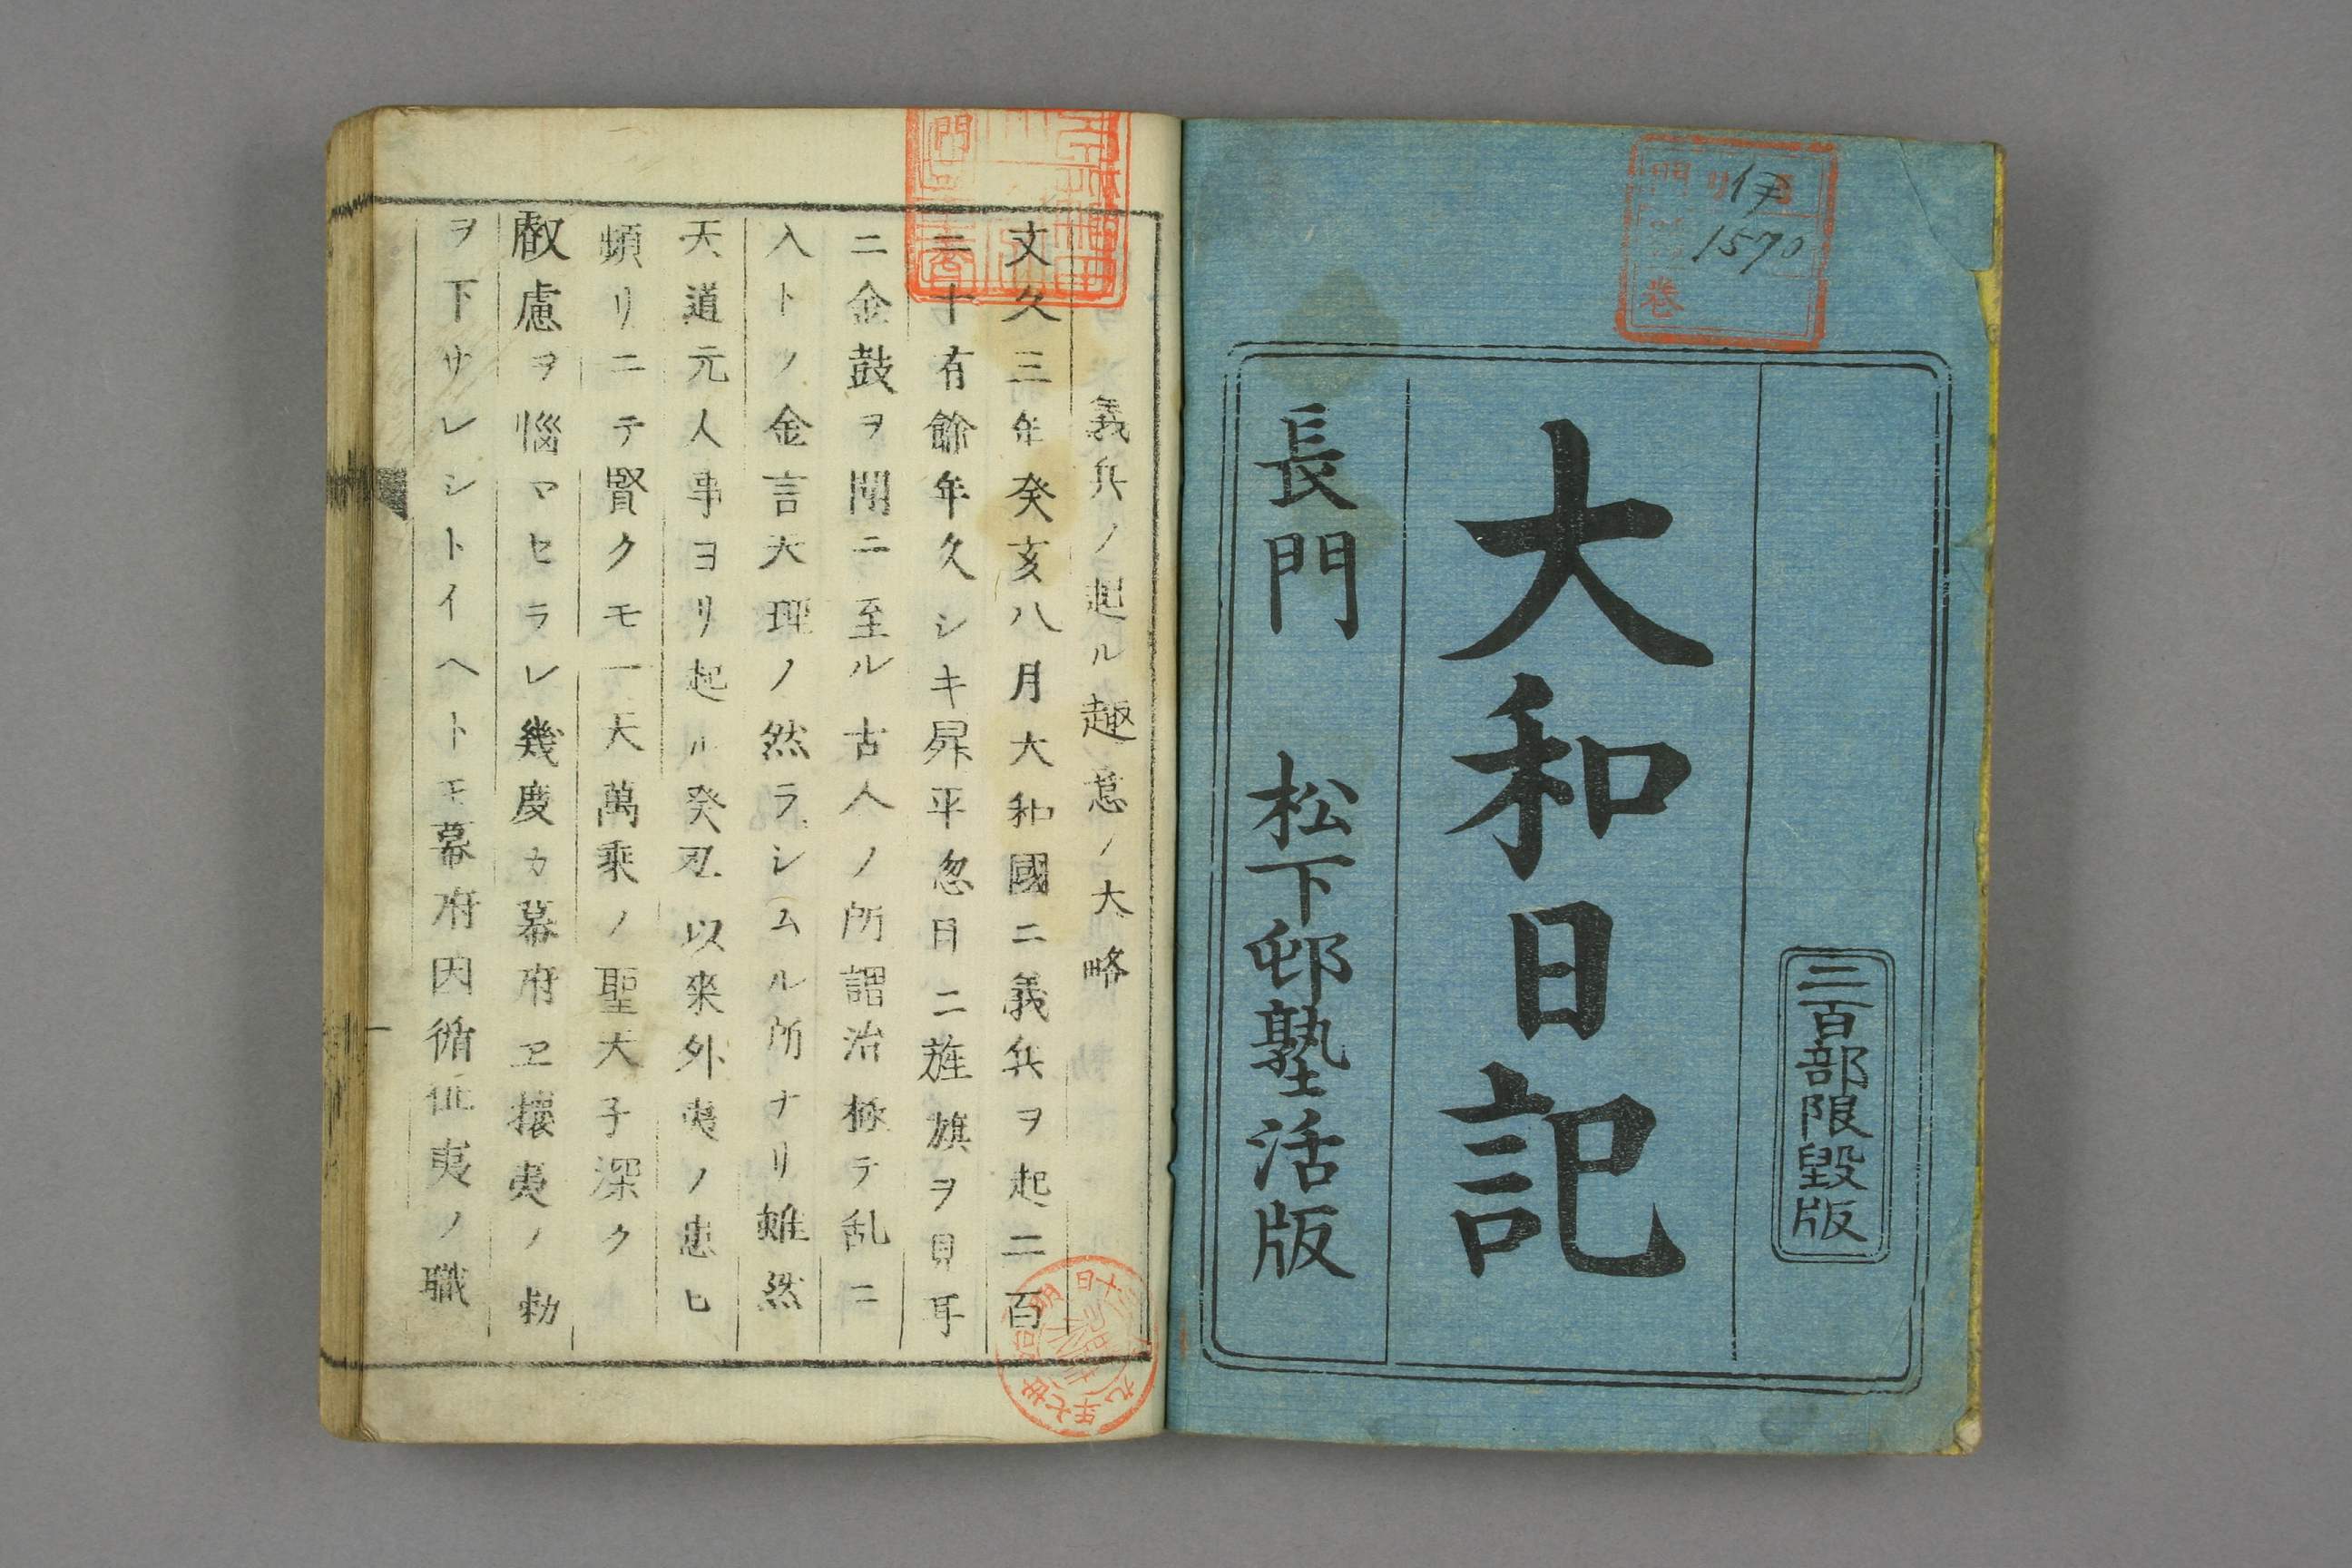 伊
1570
三百部限毀版
大和日記
長門 松下邨塾活版
義兵ノ起ル趣意ノ大略
文久三年癸亥八月大和國ニ義兵ヲ起二百
二十有餘年久シキ昇平忽目ニ旌旗ヲ見耳
ニ金鼓ヲ聞ニ至ル古人ノ所謂治極テ乱ニ
入トノ金言大理ノ然ラシムル所ナリ雖然
天道元人事ヨリ起ル癸丑以來外夷ノ患ヒ
頻リニテ賢クモ一天萬乘ノ聖天子深ク
叡慮ヲ惱マセラレ幾度カ幕府エ攘夷ノ勅
ヲ下サレシトイヘトモ幕府因循征夷ノ職